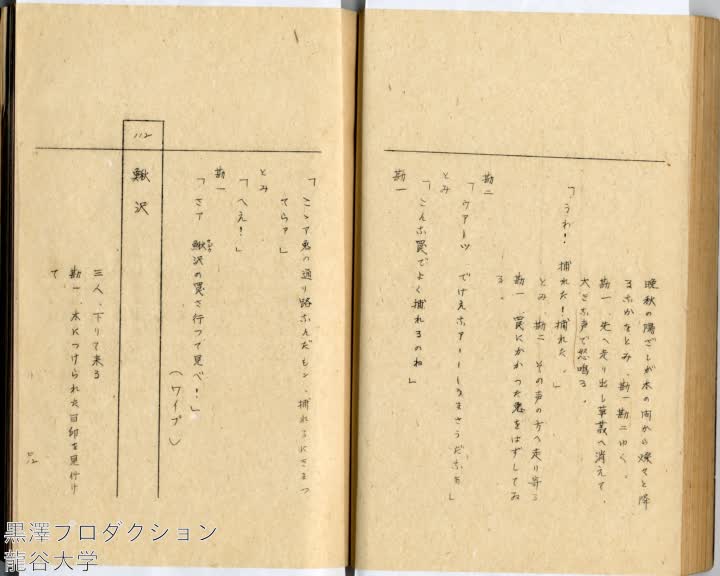 晩秋の陽ざしが木の間から燦々と降
るなかをとみ、勘一勘二ゆく。
勘一、先へ走り出し草叢へ消えて、
大きな声で怒鳴る。
「うわ！　捕れた！捕れた。」
とみ、勘二、その声の方へ走り寄る
勘一、罠にかかつた兎をはずしてゐ
る。
勘二
「ウアーツ　でけえなァーーうまさうだなあ」
とみ
「こんな罠でよく捕れるのね」
勘一
「こゝァ兎の通り路なんだもン、捕れるにきまつ
てらァ」
とみ
「へえ！」
勘一
「さァ　鰍沢の罠さ行つて見べ！」
（ワイプ）
112　鰍沢
三人、下りて来る
勘一、木につけられた目印を見付け
て
黒澤プロダクション
龍谷大学